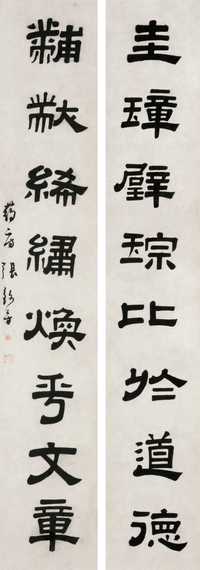 圭璋璧琮比於道德
黼黻絺繡煥乎文章
張